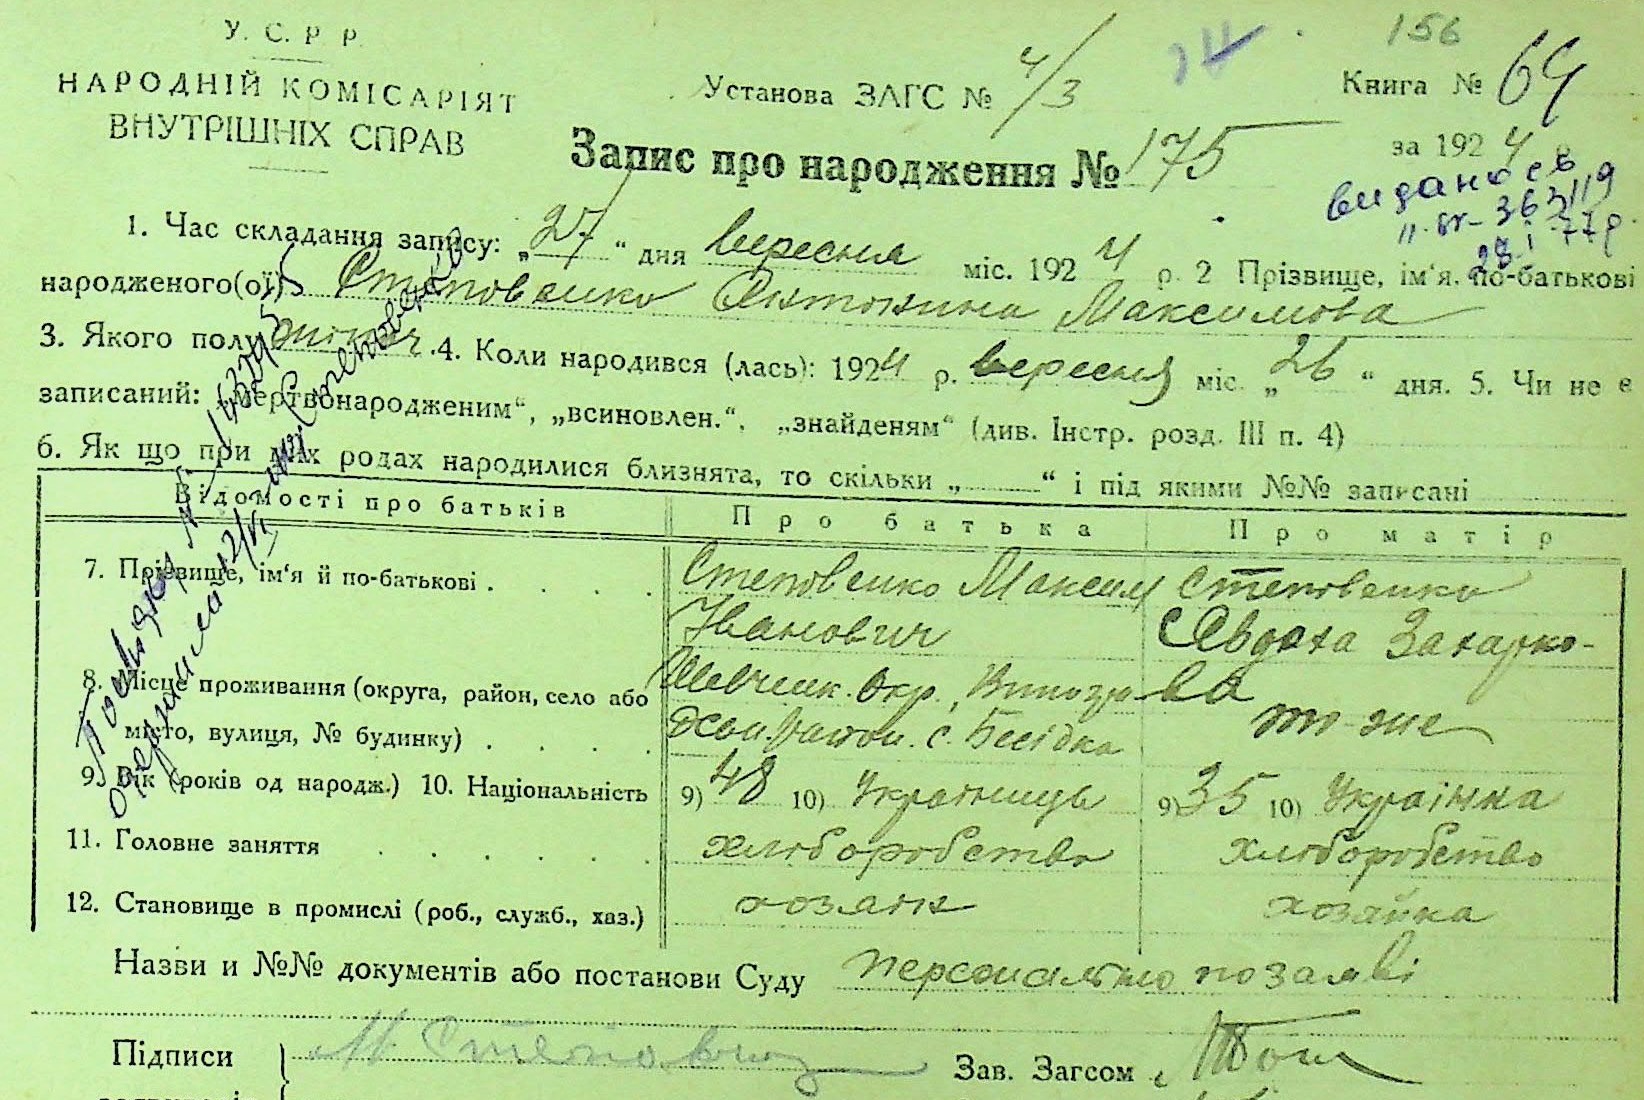 У. С. Р. Р.
НАРОДНІЙ КОМІСАРІЯТ
ВНУТРІШНІХ СПРАВ
Установа ЗАГС № 4/3
156
Книга № 69
Запис про народження № 175
за 1924
видано св
363119
28.I.77р.
1. Час складання запису: „27“ дня вересня міс. 1924 р. 2 Прізвище, ім‘я, по-батькові
народженого(ої) Степовенко Антонина Максимова
3. Якого полу жіноч. 4. Коли народився (лась): 1924 р. вересня міс. „26“ дня. 5. Чи не є
записаний: „мертвонародженим“, „всиновлен.“, „знайденям“ (див. Інстр. розд. III п. 4)
6. Як що при цих родах народилися близнята, то скільки „ “ і під якими №№ записані
Відомості про батьків Про батька Про матір
7. Прізвище, ім‘я й по-батькові . Степовенко Максим Іванович Степовенко Явдоха Захаркова
8. Місце проживання (округа, район, село або
місто, вулиця, № будинку) Шевченк. Окр., с. Бесідка то-же
9. Вік (років од народж.) 10. Національність 9) 48 10) Українець 9) 35 10) Українка
11. Головне заняття хлиборобство хлиборобство
12. Становище в промислі (роб., служб., хаз.) хозяин хозяйка
Назви и №№ документів або постанови Суду персонально по заяві
Підписи М Степовенко Зав. Загсом